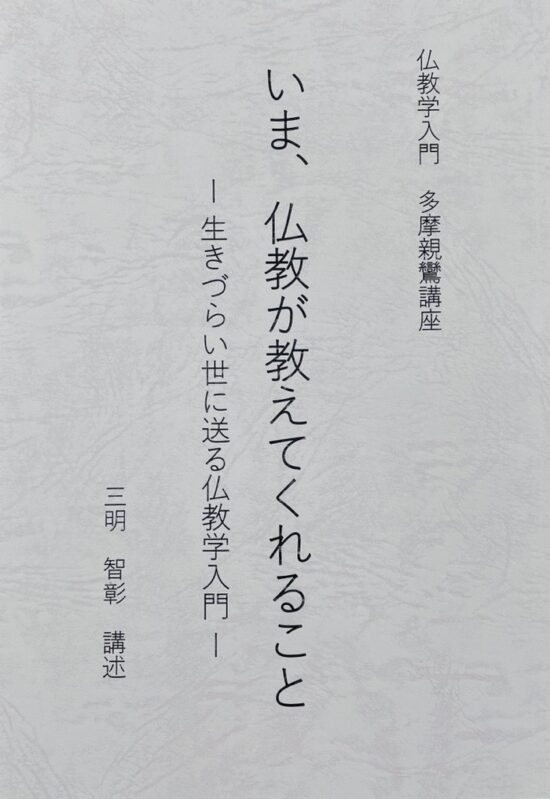 仏教学入門　多摩親鸞講座
いま、仏教が教えてくれること
ー生きづらい世に送る仏教学入門ー
三明　智彰　講述